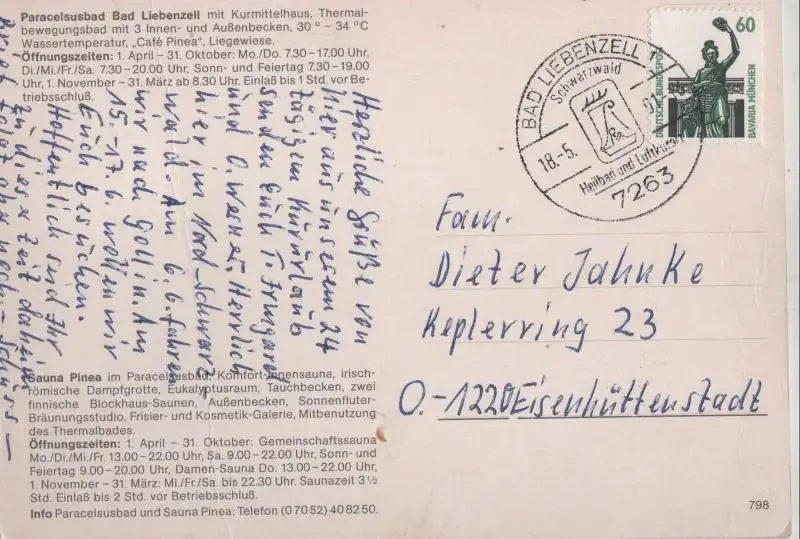 Paracelsusbad Bad Liebenzell mit Kurmittelhaus, Thermal-
bewegungsbad mit 3 Innen- und Außenbecken, 30° – 34°C
Wassertemperatur, „Café Pinea", Liegewiese.
Öffnungszeiten: 1. April – 31. Oktober: Mo./Do. 7.30 – 17.00 Uhr,
Di./Mi./Fr./Sa. 7.30 – 20.00 Uhr, Sonn- und Feiertag 7.30 – 19.00
Uhr, 1. November – 31. März ab 8.30 Uhr. Einlaß bis 1 Std. vor Be-
triebsschluß.
Herzliche Grüße von
hier aus unserem 24
tägigen Kururlaub
senden Euch T. Irmgard
und O. Werner. Herrlich
hier im Nord-Schwarz-
wald. Am 6.6. fahren
wir nach Gollin. Am
15.-17.6. wollen wir
Euch besuchen.
Hoffentlich seid Ihr
zu dieser Zeit daheim
Brief folgt
Sauna Pinea im Paracelsusbad, Komfort-Innensauna, irisch-
römische Dampfgrotte, Eukalyptusraum, Tauchbecken, zwei
finnische Blockhaus-Saunen, Außenbecken, Sonnenfluter-
Bräunungsstudio, Frisier- und Kosmetik-Galerie, Mitbenutzung
des Thermalbades.
Öffnungszeiten: 1. April – 31. Oktober: Gemeinschaftssauna
Mo./Di./Mi./Fr. 13.00 – 22.00 Uhr, Sa. 9.00 – 22.00 Uhr, Sonn- und
Feiertag 9.00 – 20.00 Uhr, Damen-Sauna Do. 13.00 – 22.00 Uhr,
1. November – 31. März: Mi./Fr./Sa. bis 22.30 Uhr. Saunazeit 3½
Std. Einlaß bis 2 Std. vor Betriebsschluß.
Info Paracelsusbad und Sauna Pinea: Telefon (07052) 408250.
BAD LIEBENZELL 1
Schwarzwald
18.-5.
Heilbad und Luftkurort
7263
60
DEUTSCHE BUNDESPOST
BAVARIA MÜNCHEN
Fam.
Dieter Jahnke
Keplerring 23
O.-1220 Eisenhüttenstadt
798